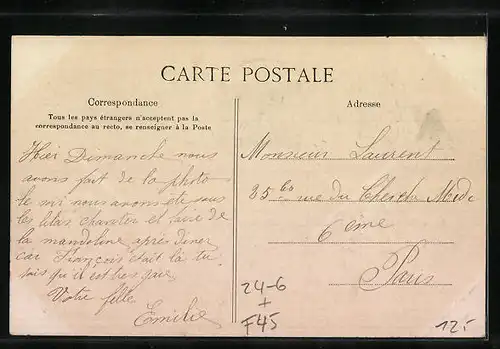 CARTE POSTALE
Correspondance
Tous les pays étrangers n'acceptent pas la
correspondance au recto, se renseigner à la Poste
Adresse
Hier Dimanche nous
avons fait de la photo
le soir nous avons été sous
les lilas chanter et jouer de
la mandoline après diner
car François était là tu
sais qu'il est très gai
Votre fille
Emilie
Monsieur Laurent
35 bis rue du Cherche Midi
6 ème
Paris
24-6
+
F45
12.-